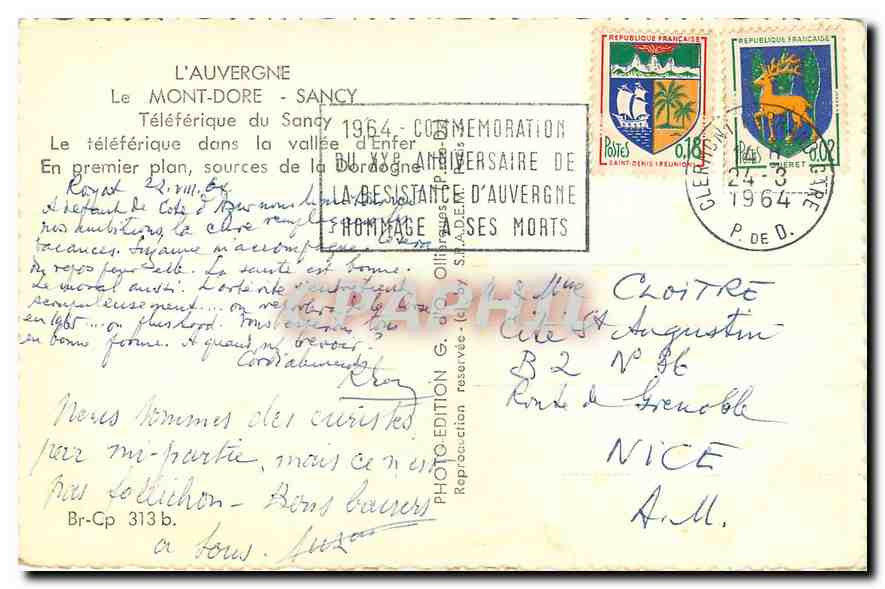 L'AUVERGNE
Le MONT-DORE - SANCY
Téléférique du Sancy
Le téléférique dans la vallée d'Enfer
En premier plan, sources de la Dordogne
1964 - COMMEMORATION
DU XXe ANNIVERSAIRE DE
LA RESISTANCE D'AUVERGNE
HOMMAGE A SES MORTS
REPUBLIQUE FRANÇAISE
POSTES 0,18
SAINT-DENIS (REUNION)
REPUBLIQUE FRANÇAISE
POSTES 0,02
GUERET
CLERMONT GARE
24-3
1964
P. DE D.
Royat 22.VIII.64
A défaut de Cote d'Azur
nos ambitions, la cure remplace
vacances. Suzanne m'accompagne.
du repos pour elle. La santé est bonne.
Le moral aussi. L'artérite s'entretient
scrupuleusement.... on
en 1965.... ou plus tard. Vous
en bonne forme. A quand revoir ?
Cordialement
Nous sommes des curistes
par mi-partie, mais ce n'est
pas folichon - Bons baisers
a tous.
CLOITRE
Cité St Augustin
B 2 N° 36
Route de Grenoble
NICE
A.M.
PHOTO-EDITION G. d'O. Ollierques P.-de-D.
Reproduction reservée - (c) by S.P.A.D.E.M. Paris
CPAPHIL
Br-Cp 313 b.